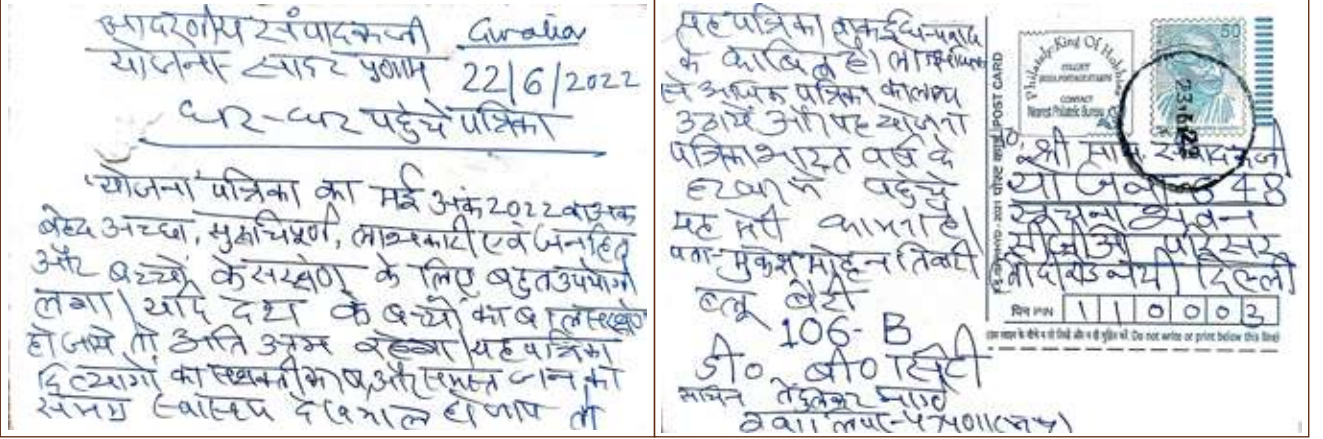 आदरणीय संपादकजी
योजना- सादर प्रणाम
22/6/2022
घर-घर पहुंचे पत्रिका
'योजना' पत्रिका का मई अंक 2022 का अंक
बेहद अच्छा, सुरुचिपूर्ण, लाभकारी एवं जनहित
और बच्चों के संरक्षण के लिए बहुत उपयोगी
लगा। यदि देश के बच्चों का बाल संरक्षण
हो जाये तो अति उत्तम रहेगा। यह पत्रिका
दिव्यांगों का सशक्तीकरण और समस्त जन को
समग्र स्वास्थ्य देखभाल हो जाय तो
यह पत्रिका
के काबिल है।
से अधिक पत्रिका का लाभ
उठायें और यह योजना
पत्रिका भारत वर्ष के
हर घर में पहुंचे
यह मेरी कामना है।
पता- मुकेश मोहन तिवारी
ब्लू बैरी
106-B
डी० बी० सिटी
सचिन तेंदुलकर मार्ग
ग्वालियर-474011(म.प्र.)
Philately-King Of Hobbies
COLLECT
INDIA POSTAGE STAMPS
CONTACT
Nearest Philatelic Bureau
50
23.6.22
पोस्ट कार्ड POST CARD
श्री संपादकजी
योजना-648
सूचना भवन
सीजीओ परिसर
लोदी रोड नयी दिल्ली
पिन PIN 110003
Do not write or print below this line